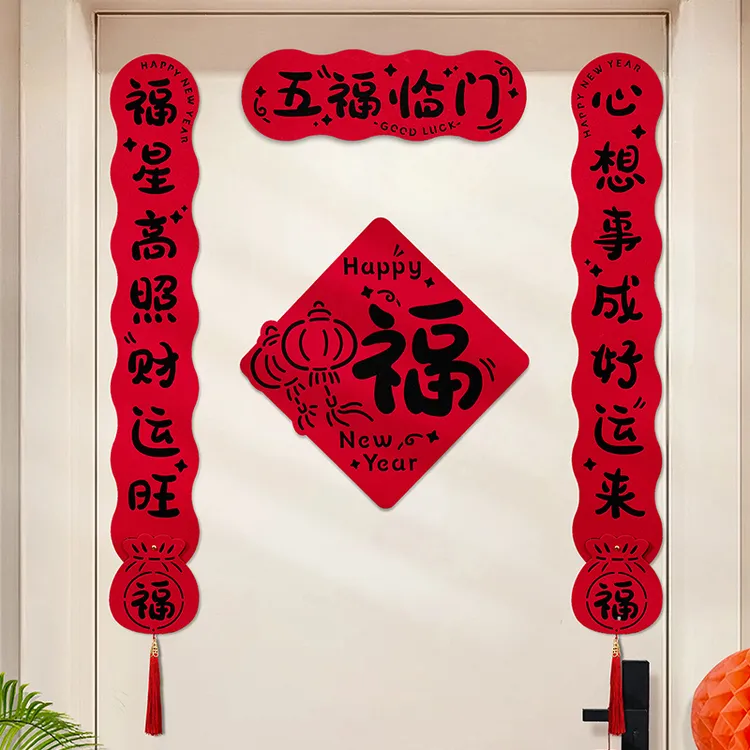 五福临门
-GOOD LUCK-
HAPPY NEW YEAR
心想事成好运来
福
HAPPY NEW YEAR
福星高照财运旺
福
Happy
福
New
Year